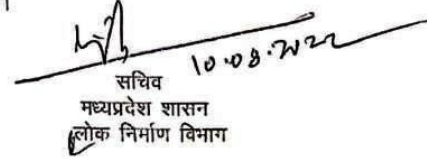 10.08.2022
सचिव
मध्यप्रदेश शासन
लोक निर्माण विभाग